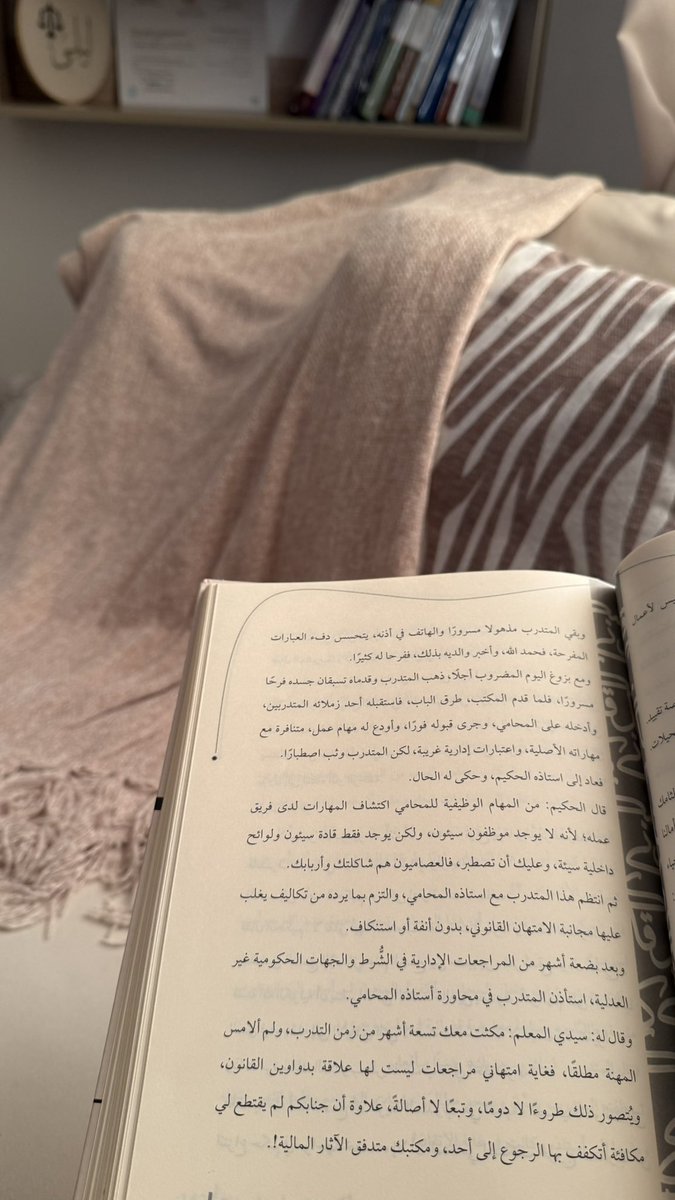 ليلى
وبقي المتدرب مذهولا مسرورًا والهاتف في أذنه، يتحسس دفء العبارات
المفرحة، فحمد الله، وأخبر والديه بذلك، ففرحا له كثيرًا.
ومع بزوغ اليوم المضروب أجلًا، ذهب المتدرب وقدماه تسبقان جسده فرحًا
مسرورًا، فلما قدم المكتب، طرق الباب، فاستقبله أحد زملائه المتدربين،
وأدخله على المحامي، وجرى قبوله فورًا، وأودع له مهام عمل، متنافرة مع
مهاراته الأصلية، واعتبارات إدارية غريبة، لكن المتدرب وثب اصطبارًا.
فعاد إلى استاذه الحكيم، وحكى له الحال.
قال الحكيم: من المهام الوظيفية للمحامي اكتشاف المهارات لدى فريق
عمله؛ لأنه لا يوجد موظفون سيئون، ولكن يوجد فقط قادة سيئون ولوائح
داخلية سيئة، وعليك أن تصطبر، فالعصاميون هم شاكلتك وأربابك.
ثم انتظم هذا المتدرب مع استاذه المحامي، والتزم بما يرده من تكاليف يغلب
عليها مجانبة الامتهان القانوني، بدون أنفة أو استنكاف.
وبعد بضعة أشهر من المراجعات الإدارية في الشُّرط والجهات الحكومية غير
العدلية، استأذن المتدرب في محاورة أستاذه المحامي.
وقال له: سيدي المعلم: مكثت معك تسعة أشهر من زمن التدرب، ولم ألامس
المهنة مطلقًا، فغاية امتهاني مراجعات ليست لها علاقة بدواوين القانون،
ويُتصور ذلك طروءًا لا دومًا، وتبعًا لا أصالةً، علاوة أن جنابكم لم يقتطع لي
مكافئة أتكفف بها الرجوع إلى أحد، ومكتبك متدفق الآثار المالية!.